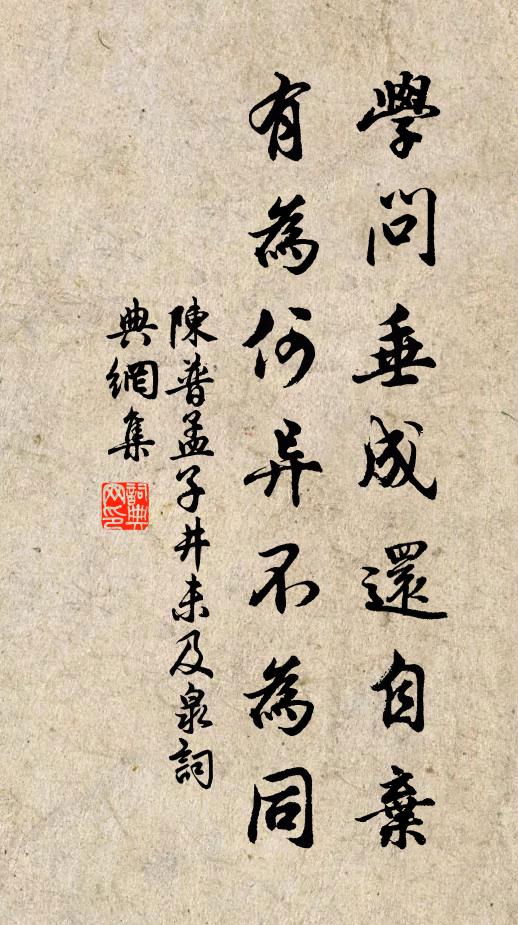 學問垂成還自棄
有為何异不為同
陳普孟子井未及泉詞
典網集
詞典
网印